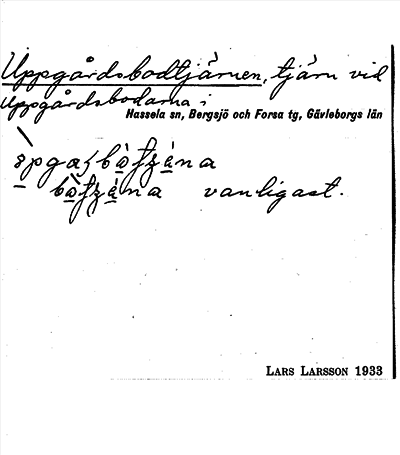 Uppgårdsbodtjärnen, tjärn vid
Uppgårdsbodarna i
Hassela sn, Bergsjö och Forsa tg, Gävleborgs län
vanligast.
LARS LARSSON 1933